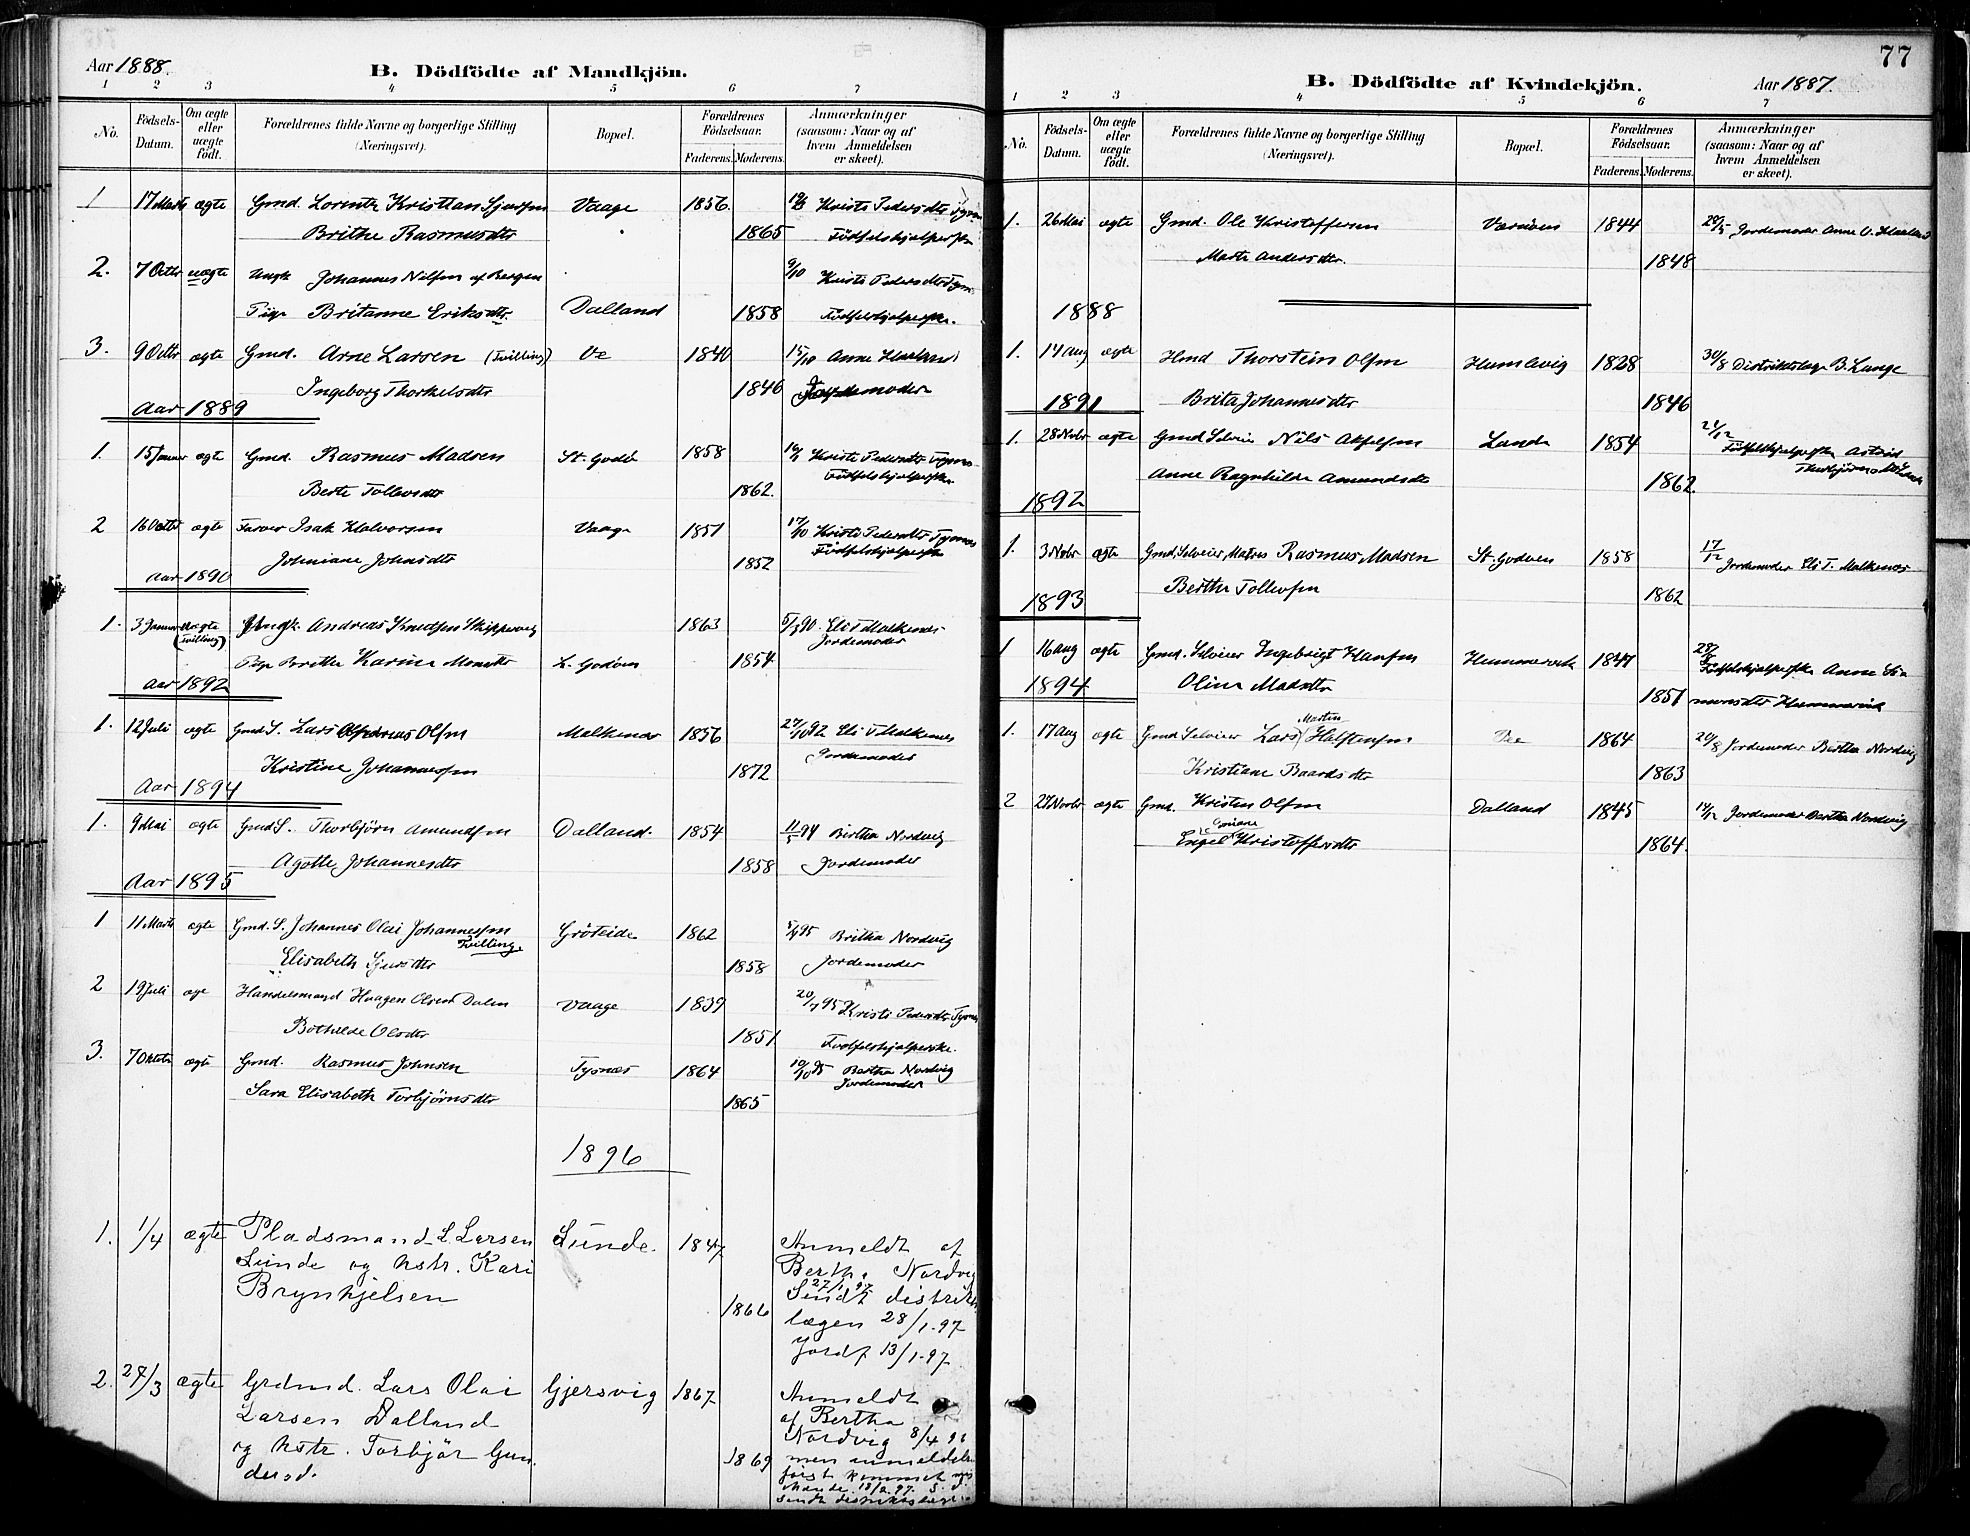 Aar 1888.
B. Dödfödte af Mandkjön.
1 2 3 4 5 6 7
No. Födsels-Datum. Om ægte eller uægte födt. Forældrenes fulde Navne og borgerlige Stilling (Næringsvei). Bopæl. Forældrenes Födselsaar. Faderens. Moderens. Anmærkninger (saasom: Naar og af hvem Anmeldelsen er skeet).
1 17 Marts ægte Gmd. Lorentz Kristian Sjursen Vaage 1856. Kristi Pedersdtr Tysn
Brithe Rasmusdtr 1865 Födselshjælpersk
2. 7 Octbr uægte Ungk. Johannes Nilsen af Bergen 9/10 Kristi Pedersdtr Tysn.
Pige Britanne Eriksdtr. Dalland 1858 Födselshjælperske.
3. 9 Octbr ægte Gmd. Arne Larsen (Tvilling) Ve 1840 15/10 Anne Haaland
Ingeborg Thorkelsdtr 1846 Jordemoder
Aar 1889
1. 15 Januar ægte Gmd. Rasmus Madsen St. Godö 1858 Kristi Pedersdtr Tysnes
Berte Tollevsdtr 1862. Födselshjælperske
2 16 Octbr ægte Farver Isak Halvorsen Vaage 1851 17/10 Kristi Pedersdtr Tysnes
Johniane Johnsdtr 1852 Födselshjælpersk
Aar 1890
1. 3 Januar uægte (Tvilling) Ungk. Andreas Knudsen Skippervig 1863 Eli T Malkenes
Jordemoder
Pige Britha Karina Monsdtr L. Godöen 1854
Aar 1892
1. 12 Juli ægte Gmd S. Lars Andreas Olsen Malkenes 1856 27/10 92 Eli T Malkenes
Kristine Johannessen 1872 Jordemoder
Aar 1894
1. 9 Mai ægte Gmd S. Thorbjörn Amundsen Dalland. 1854 11/5 94 Birtha Nordvig
Agotte Johannesdtr 1858 Jordemoder
Aar 1895
1 11 Marts ægte Gmd. S. Johannes Olai Johannessen Gröteide 1862 Britha Nordvig
Tvilling
Elisabeth Sjursdtr 1858 Jordemoder
2 19 Juli Handelsmand Haagen Olsen Dalen Vaage 1839 20/7 95 Kristi Pedersdtr Tysnes
Bothilde Olsdtr 1851 Fødselshjælperske.
3. 7 Oktober ægte Gmd. Rasmus Johnsen Tysnæs 1864 10/10 95 Bertha Nordvig
Jordemoder
Sara Elisabeth Torbjörnsdtr 1865
1896
1. 1/4 ægte Pladsmand L. Larsen Lunde. 1847 Anmeldt af
Lunde og hstr. Kari Bertha Nordvig
27/1 97
Brynhjelsen 1866 Sendt distrikts
lægen 28/1.97
Jordf 13/1.97.
2. 27/3 ægte Grdmd. Lars Olai Gjersvig 1867 Anmeldt
Larsen Dalland af Bertha
Nordvig 8/4 96
og hstr. Torbjör Gun 1869 men anmeldels
dersd. först kommet
hænde 18/2.97. S. d.
sendt distriktslæge
77
B. Dödfödte af Kvindekjön.
Aar 1887.
1 2 3 4 5 6 7
No. Födsels-Datum. Om ægte eller uægte födt. Forældrenes fulde Navne og borgerlige Stilling (Næringsvei). Bopæl. Forældrenes Födselsaar. Faderens. Moderens. Anmærkninger (saasom: Naar og af hvem Anmeldelsen er skeet).
1. 26 Mai ægte Gmd. Ole Kristoffersen Værnöen 1844 Jordemoder Anne O. Haaland
Marta Andersdtr. 1848
1888
1. 14 Aug ægte Hmd Thorstein Olsen Humlevig 1828 30/8 Distriktslæge B. Lange
Brita Johannesdtr 1846
1891
1. 28 Novbr ægte Gmd Selveier Nils Akselsen Lande 1854 24/12 Födselshjælperske Astrid
Anne Ragnhilde Amundsdtr 1862.
1892
1. 3 Novbr ægte Gmd, Selveier, Matros Rasmus Madsen St. Godöen 1858 17/12 Jordemoder Eli T. Malkenes
Bertha Tollevsen 1862
1893
1 16 Aug ægte Gmd. Selveier Ingebrigt Hansen Hummervik 1847 Födselshjælperske Anne Si-
Olina Madsdtr 1851 monsdtr Hummervik
1894
1. 17 Aug ægte Gmd Selveier Lars Martin Halstensen 1864 20/8 Jordemoder Bertha Nordvig
Kristiane Baardsdtr 1863
2 27 Novbr ægte Gmd. Kristen Olsen Dalland 1845 14/12 Jordemoder Bertha Nordvig
Engel Kristoffersdtr 1864.